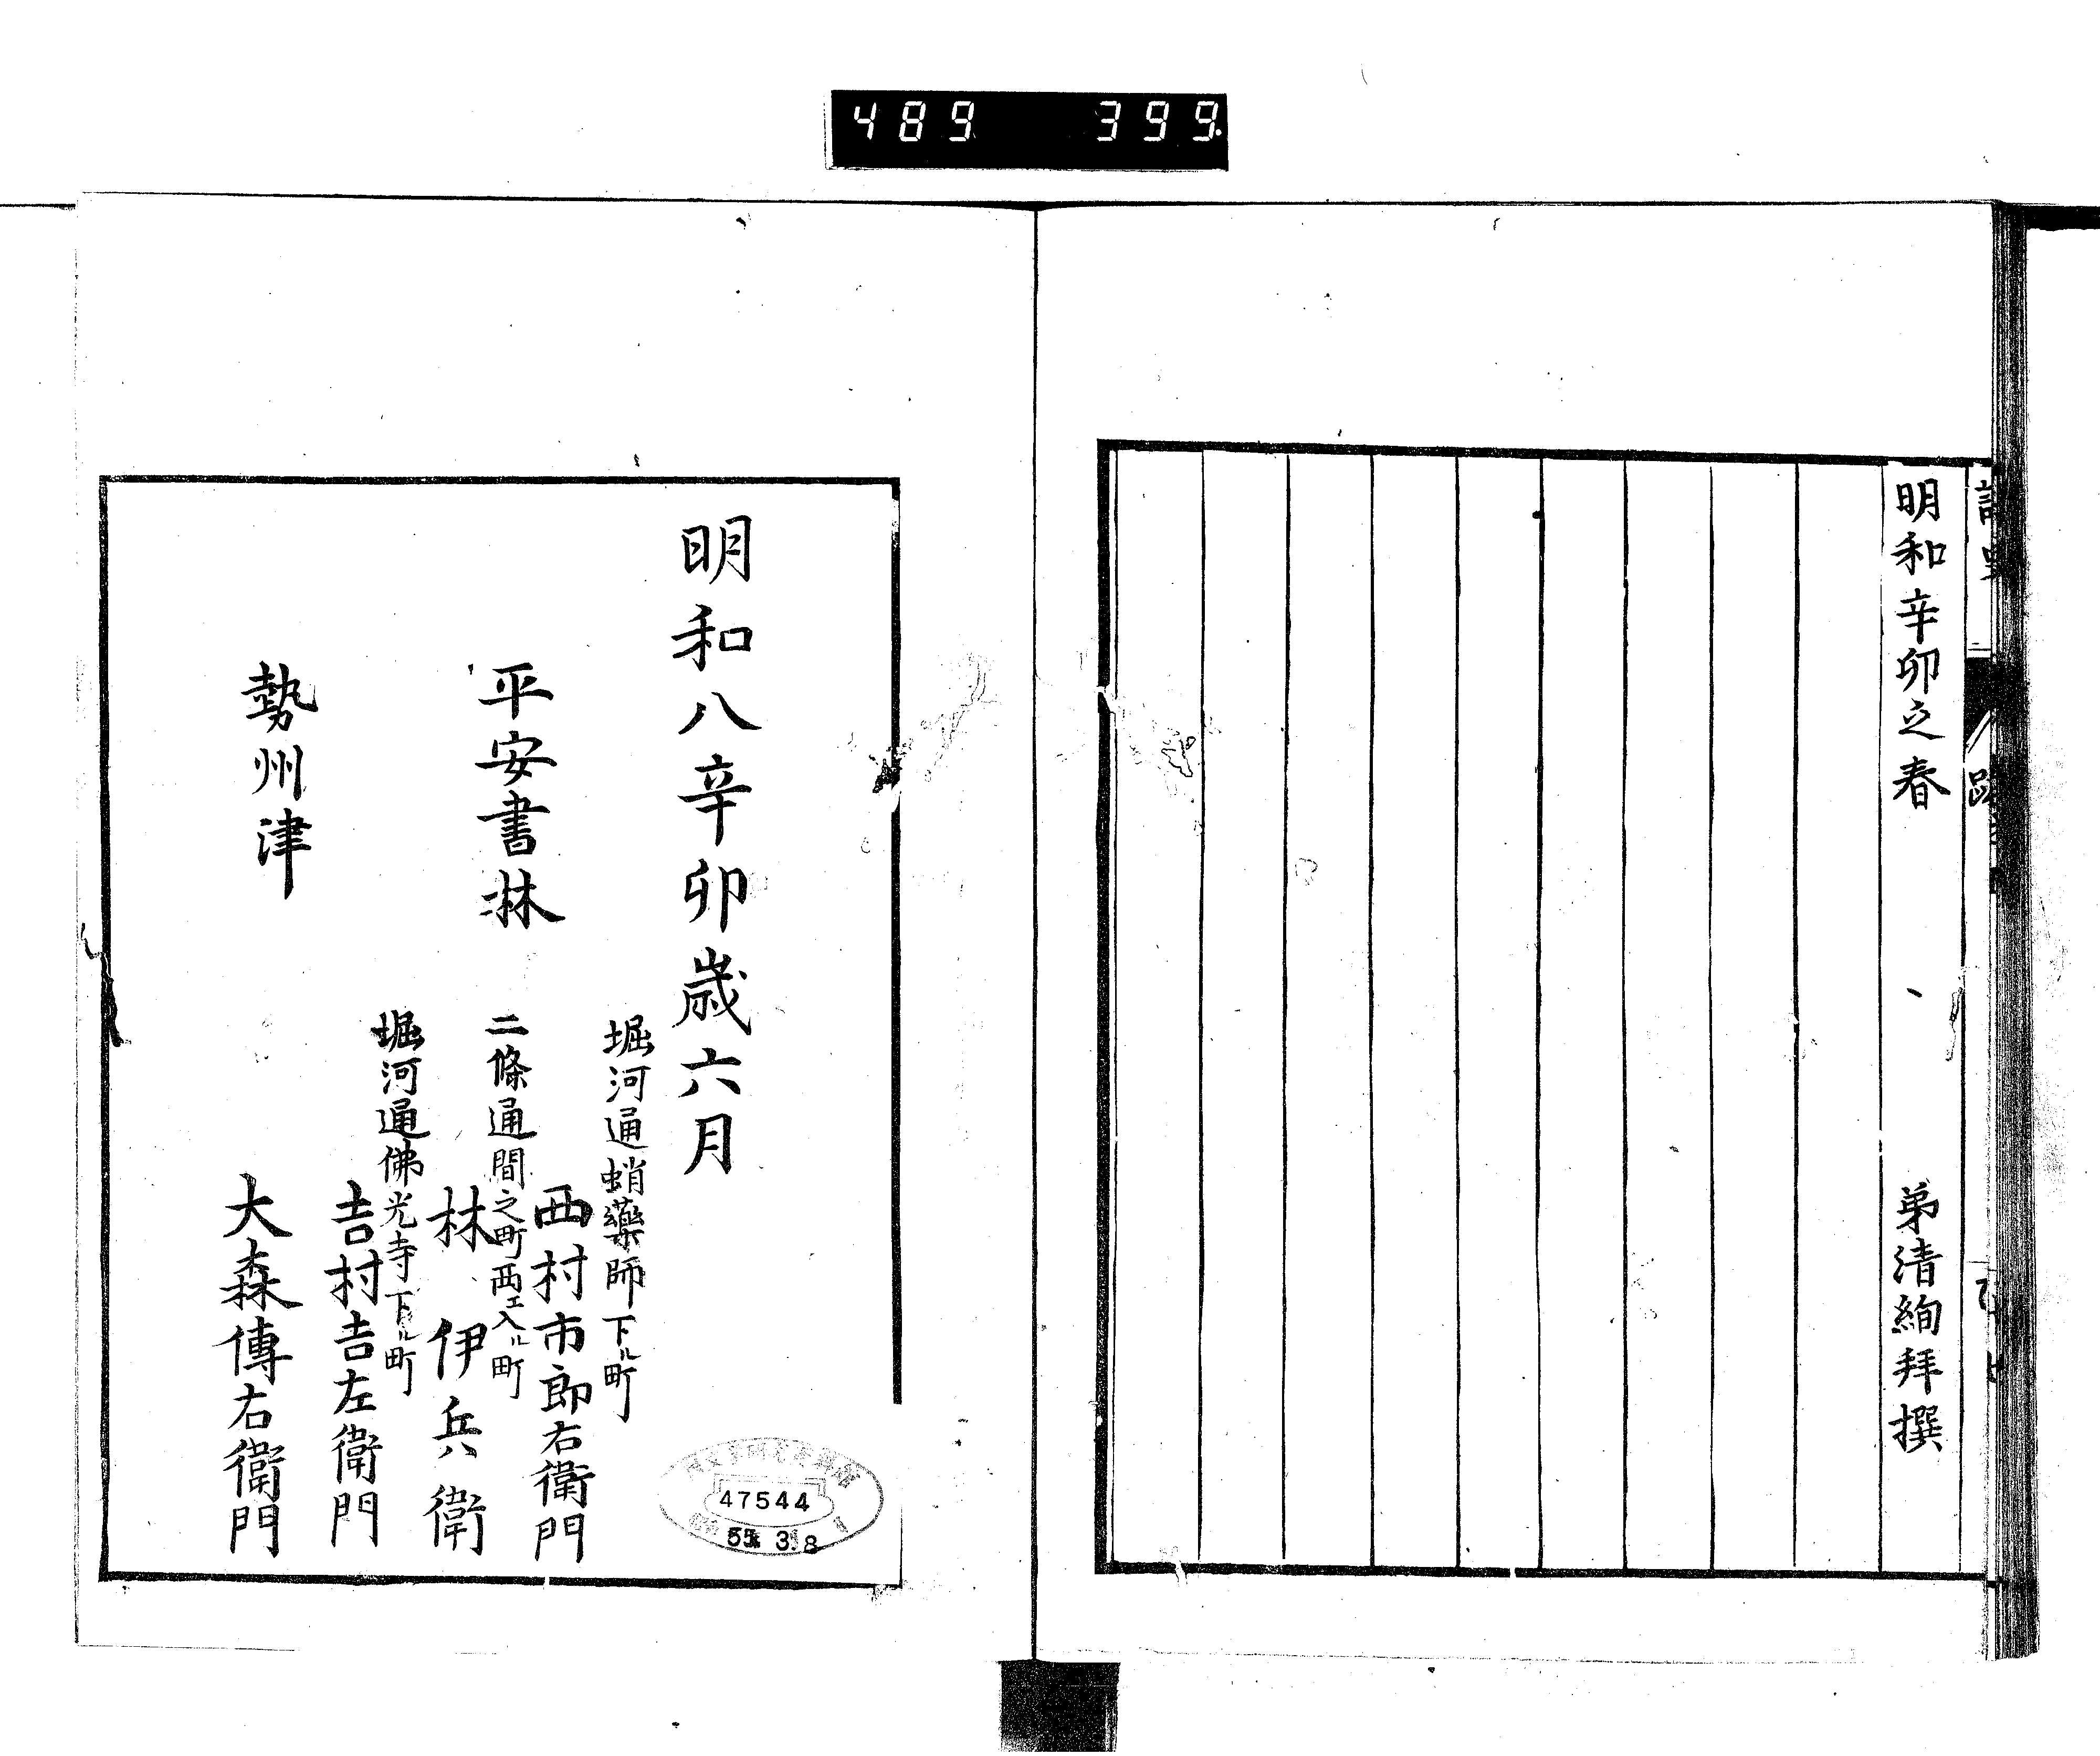 489 399
明和辛卯之春 弟清絢拜撰
明和八辛卯歳六月
堀河通蛸藥師下ル町
西村市郎右衛門
平安書林
二條通間之町西エ入ル町
林伊兵衛
堀河通佛光寺下ル町
吉村吉左衛門
勢州津
大森傳右衛門
47544
55. 3.8